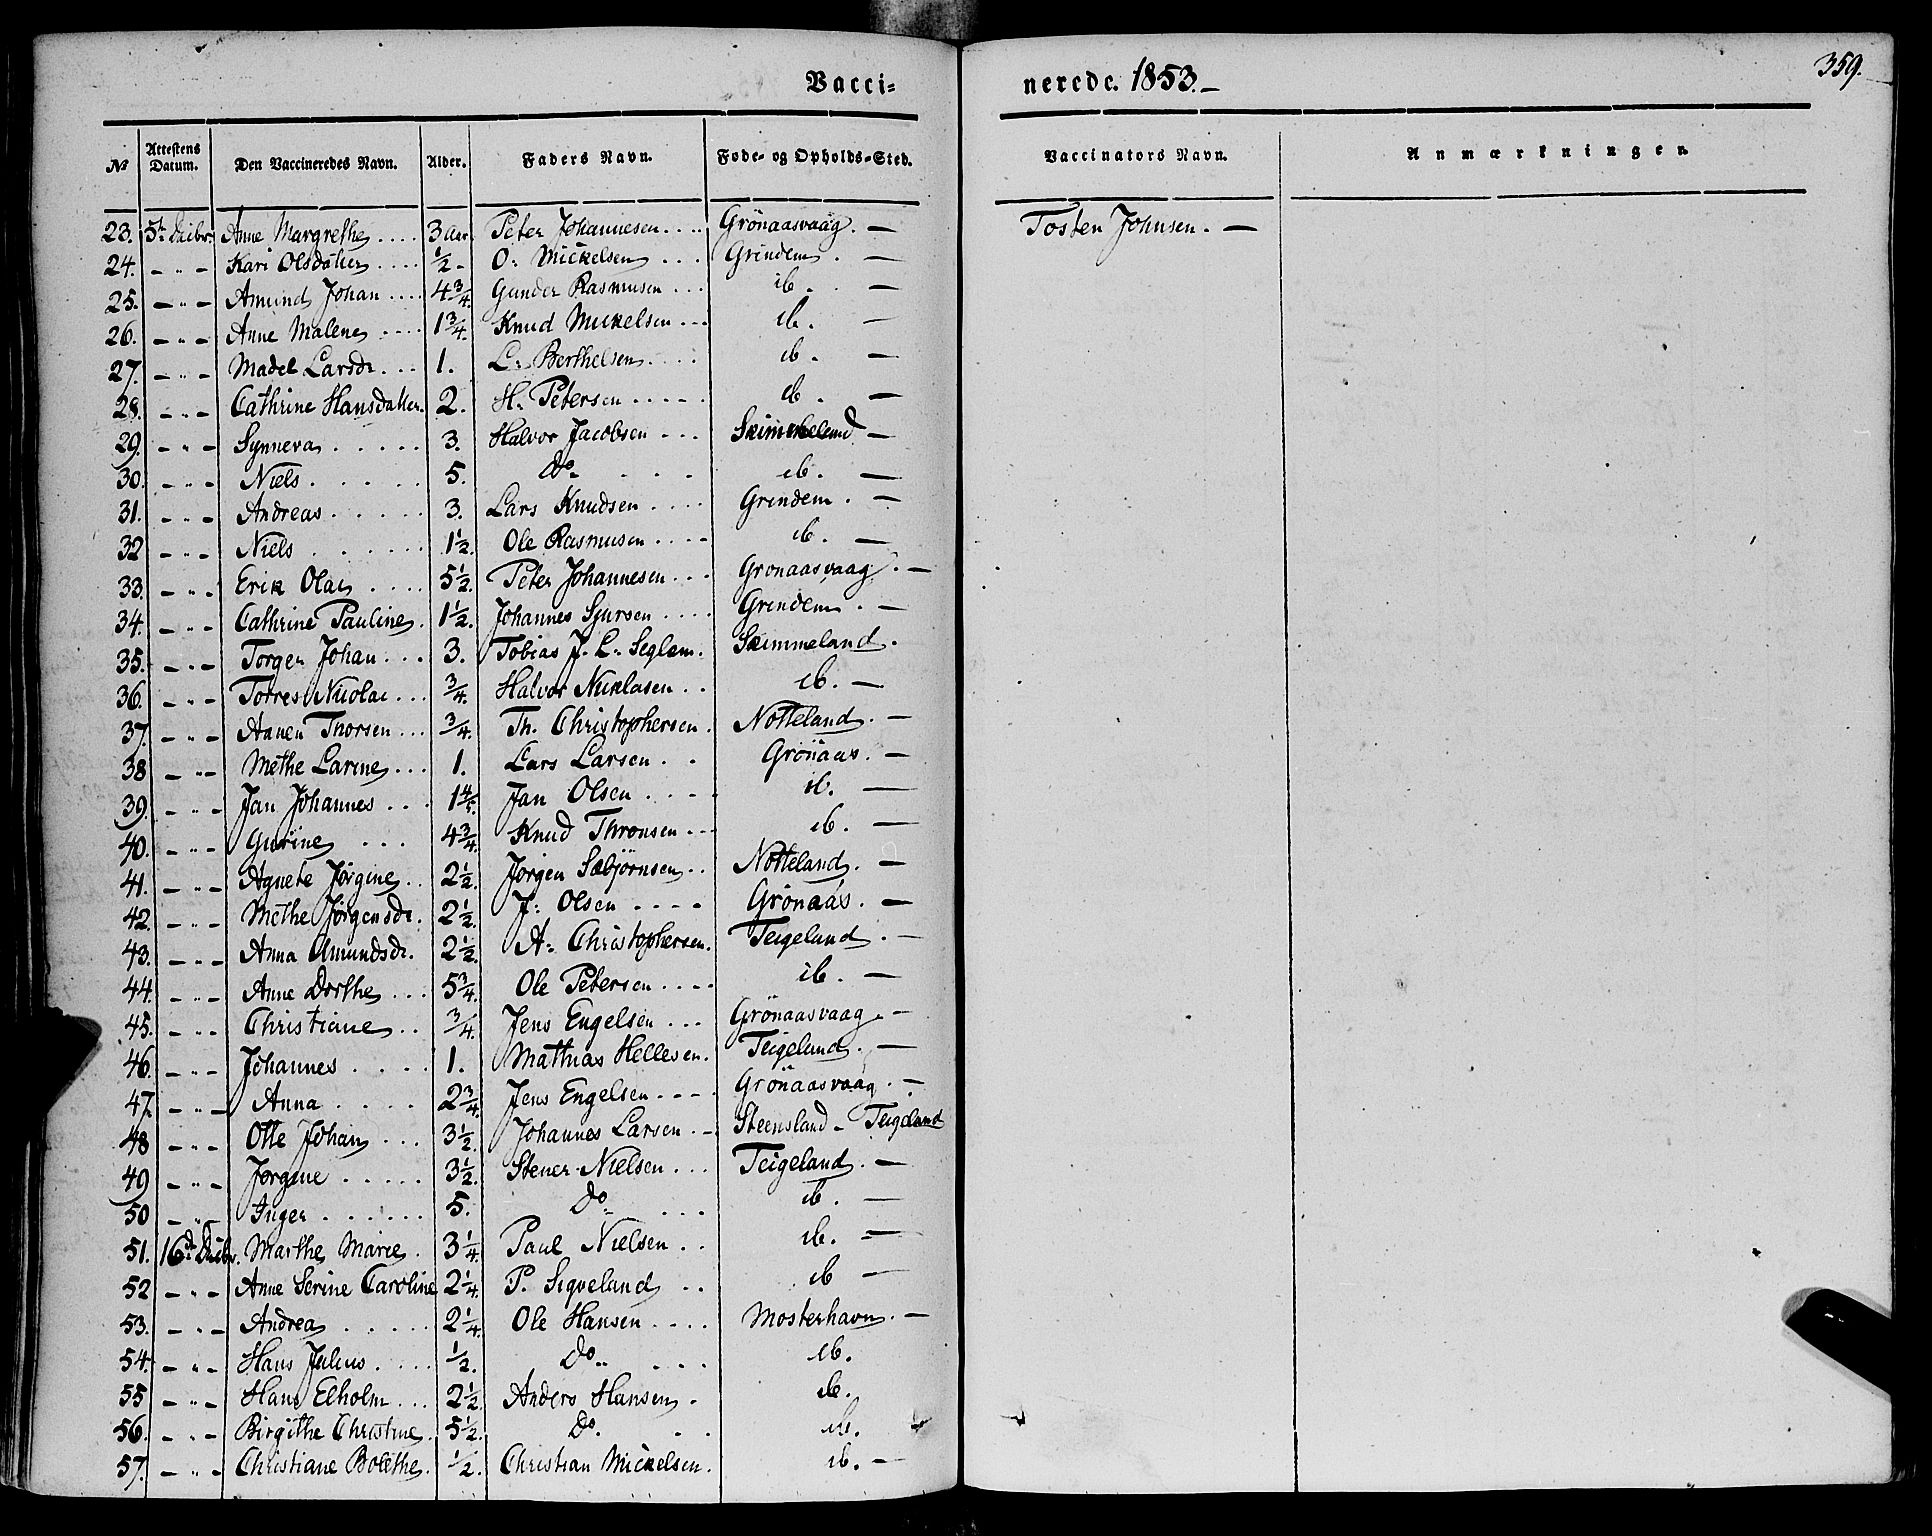 Vacci= nerede. 1853.— 359.
№ Attestens Datum. Den Vaccineredes Navn. Alder. Faders Navn. Føde- og Opholds-Sted. Vaccinators Navn. Anmærkninger.
23. 5te Decbr Anne Margrethe .... 3 Aar. Peter Johannesen .... Grönaasvaag. — Tosten Johnsen. —
24. — " — Kari Olsdatter .... ½ - O: Mickelsen ... Grindem . —
25. — " — Amund Johan .... 4¾. Gunder Rasmusen ... ib. . —
26. — " — Anne Malene .... 1¾. Knud Mickelsen ... ib. —
27. — " — Madel Larsdr. ... 1. L: Berthelsen .... ib . —
28. — " — Cathrine Hansdatter. 2. H. Petersen ..... ib . —
29. — " — Synneva ..... 3. Halvor Jacobsen ... Skimmeland —
30. — " — Niels ..... 5. Do. .... ib. —
31. — " — Andreas ..... 3. Lars Knudsen .... Grindem . —
32 — " — Niels ...... 1½. Ole Rasmusen .... ib. —
33. — " — Erik Olai .... 5½. Peter Johannesen ... Gronaasvaag. —
34. — " — Cathrine Pauline. 1½. Johannes Sjursen .... Grindem . —
35. — " — Torger Johan ... 3. Tobias J. L. Seglem. Skimmeland.
36. — " — Torres Nicolai ... ¾. Halvor Nicklasen .. ib. —
37. — " — Aanen Thorsen ... ¾. Th. Christophersen. Notteland. —
38 — " — Methe Larine ... 1. Lars Larsen .. Grönaas. —
39. — " — Jan Johannes ... 1⅘. Jan Olsen .... ib. —
40. — " — Gurine ... 4¾. Knud Thronsen ... ib. —
41. — " — Agnete Jørgine .. 2½. Jørgen Sæbjørnsen .. Notteland. —
42. — " — Methe Jørgensdr. 2½. J: Olsen .... Grönaas. —
43. — " — Anna Amundsdr. 2½. A: Christophersen. Teigeland. —
44. — " — Anne Dorthe ... 5¾. Ole Petersen .... ib. —
45. — " — Christiane .. ¾. Jens Engelsen ... Grönaasvaag. —
46. — " — Johannes .... 1. Mathias Hellesen. Teigeland. —
47. — " — Anna .... 2¾. Jens Engelsen .... Grönaasvaag. —
48 — " — Otte Johan ... 3½. Johannes Larsen .. Steensland - Teigeland
49 — " — Jørgine ..... 3½. Stener Nielsen ... Teigeland. —
50 — " — Inger ...... 5. Do. ... ib. —
51. 16de Decbr. Marthe Marie . 3¼. Paul Nielsen .. ib. —
52 — " — Anne Serine Caroline 2¼. P. Sigveland .. ib —
53. — " — Andrea ..... 2¼. Ole Hansen .... Mosterhavn. —
54. — " — Hans Julius .... ½. Do. ... ib.
55 — " — Hans Elholm ... 2½. Anders Hansen . ib.
56. — " — Birgithe Christine. 5½. Do. .. ib.
57. — " — Christiane Bolethe. ½. Christian Mickelsen. ib. —